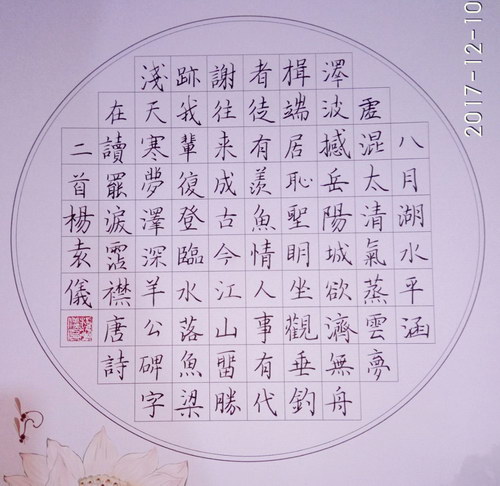 八月湖水平涵
虛混太清氣蒸雲夢
澤波撼岳陽城欲濟無舟
楫端居恥聖眀坐觀垂釣
者徒有羨魚情人事有代
謝往来成古今江山畱勝
跡我輩復登臨水落魚梁
淺天寒夢澤深羊公碑字
在讀罷淚霑襟唐詩
二首楊袁儀
2017-12-10